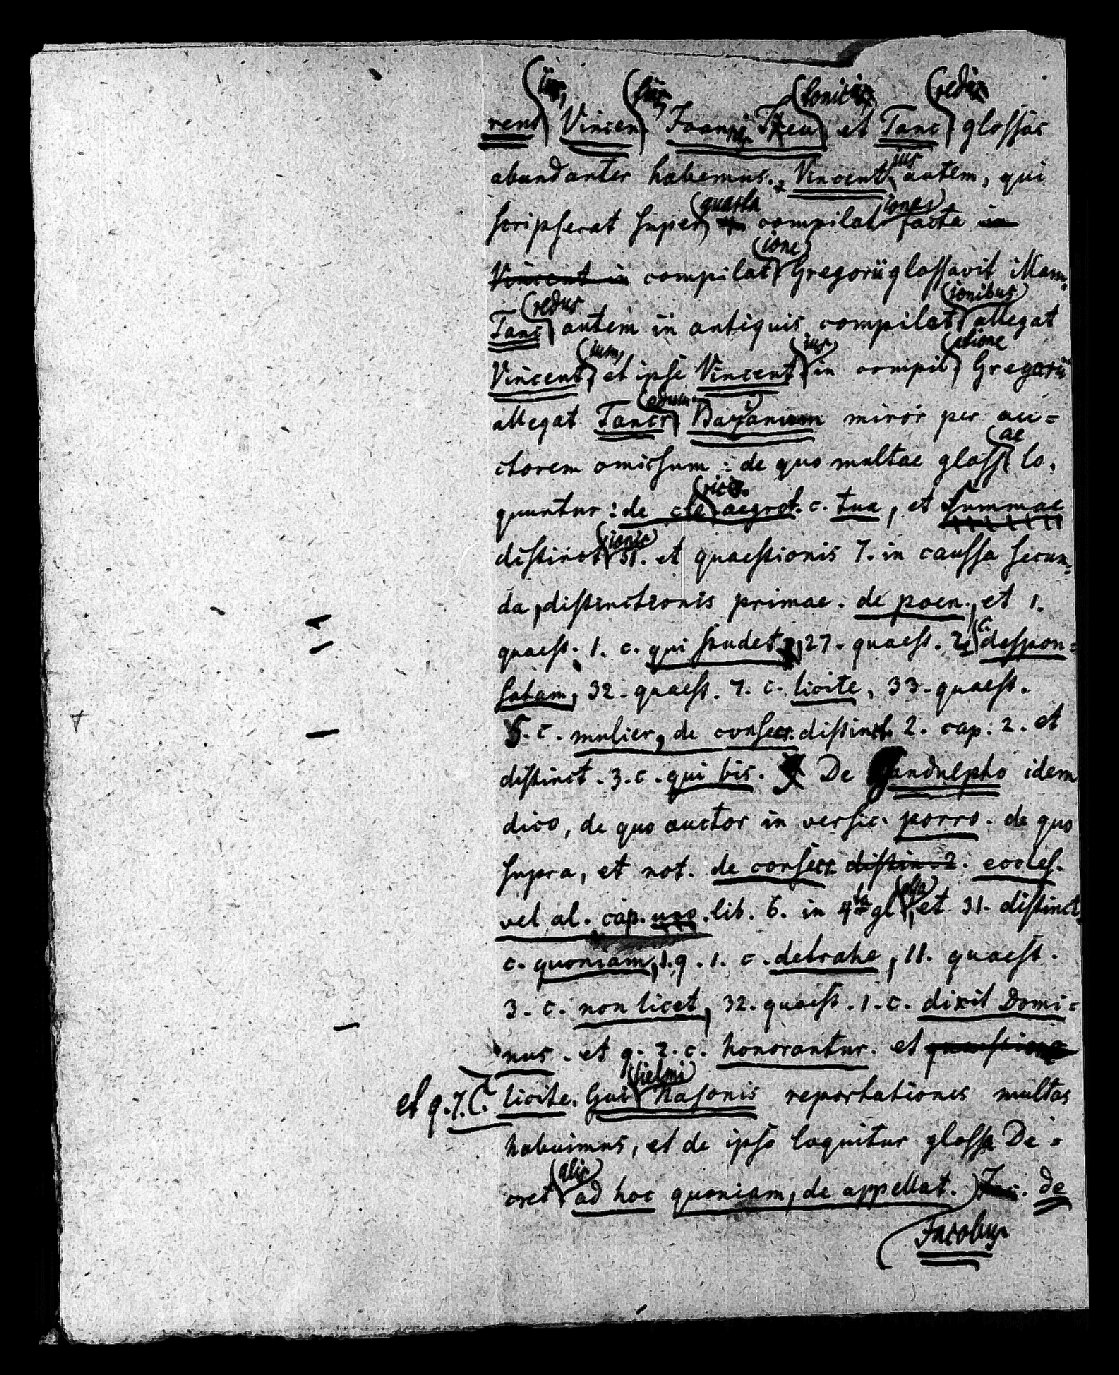 rent(ius, Vincen(tius, Joannis Theu(tonicis, et Tanc(redis glossas
abundanter habemus. Vincent(ius autem, qui
scripserat super (quasdam compilat(iones facta in
Vincent in compilat(ione Gregorii glossavit. Nam=
Tanc(redus autem in antiquis compilat(ionibus allegat
Vincent(ium, et ipse Vincent(ius in compil(atione Gregorii
allegat Tancr(edum. Bazianum miror per au=
ctorem omissum: de quo multae gloss(ae lo=
quuntur: de cle(rico aegrot. c. tua, et summae
distinct(ionis 31. et quaestionis 7. in caussa secun=
da, distinctionis primae. de poen., et 1.
quaest. 1. c. qui studet, 27. quaest. 2. (c. despon=
satam, 32. quaest. 7. c. licite, 33. quaest.
5. c. mulier, de consecr. distinct. 2. cap. 2. et
distinct. 3. c. qui bis. De Gandulpho idem
dico, de quo auctor in versic. porro. de quo
supra, et not. de consecr. distin. 2. eccles.
vel al. cap. uno. lib. 6. in 4ta gl(ossa, et 31. distinct.
c. quoniam, 1. q. 1. c. detrahe, 11. quaest.
3. c. non licet, 32. quaest. 1. c. dixit Domi=
nus. et q. 2. c. honorantur. et quaestione
et q. 7. C. licite. Gui(lielmi Nasonis reportationes multas
habuimus, et de ipso loquitur glossa De=
cret(alis ad hoc quoniam, de appellat.) Jac. de
(Jacobus